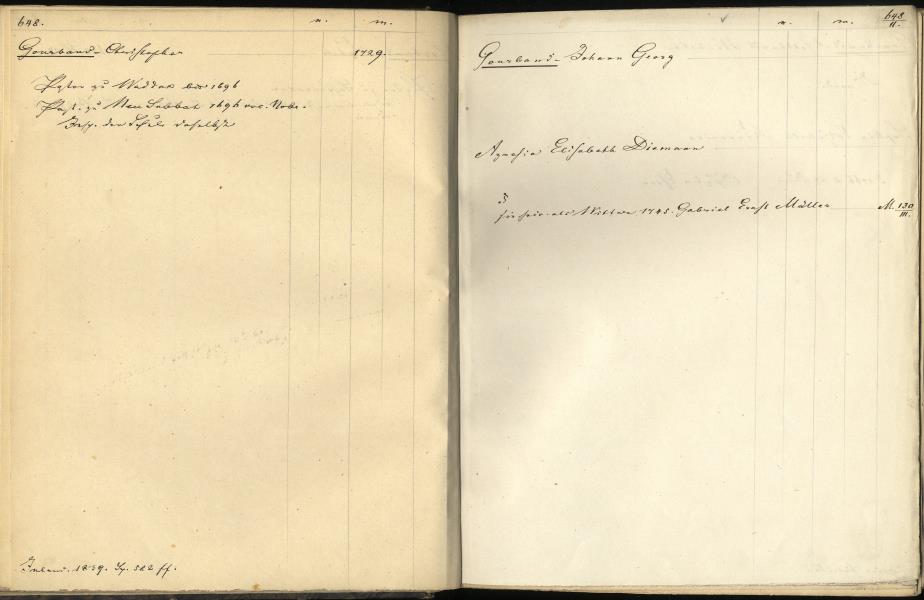 648.
n.
m.
Gourband Christopher
1729.
Pastor zu Waddax bis 1696
Past. zu Neu Subbat 1696 voc. Nobr.
Insp. der Schule daselbst
Inland. 1839. Sp. 522 ff.
n.
m.
648/II.
Gourband Johann Georg
Agnesia Elisabeth Diemann
3
sie heir. als Wittwe 1745. Gabriel Ernst Müller
M. 130/III.